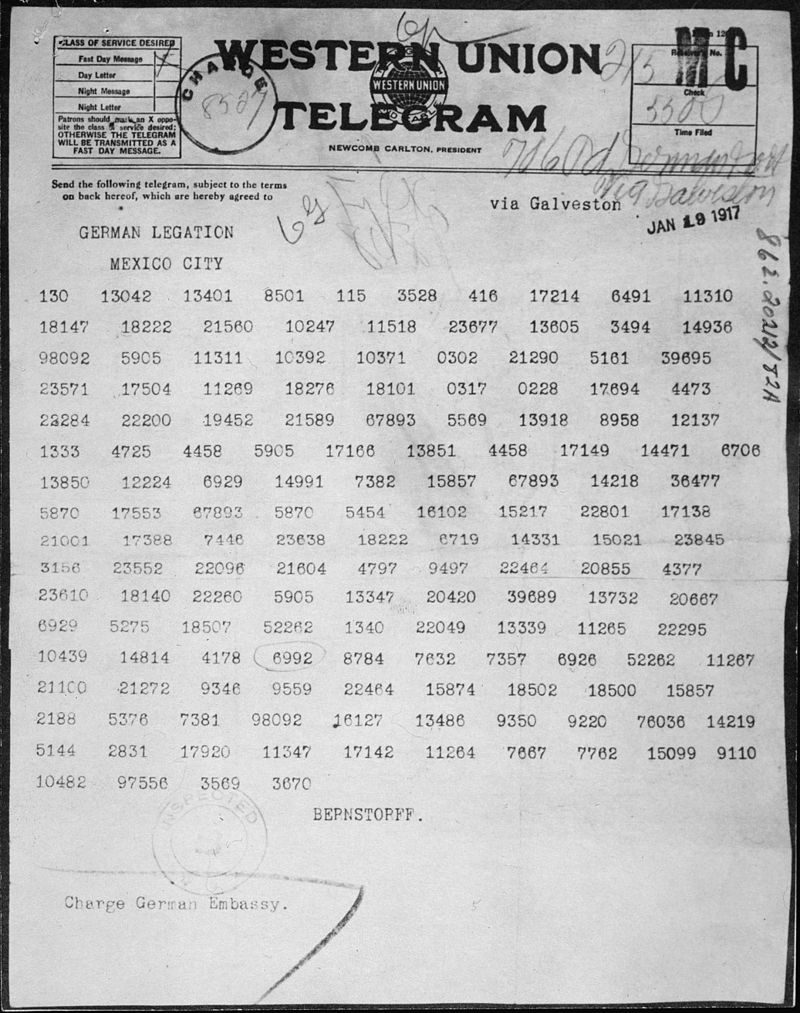 CLASS OF SERVICE DESIRED
Fast Day Message
Day Letter
Night Message
Night Letter
Patrons should mark an X oppo-
site the class of service desired:
OTHERWISE THE TELEGRAM
WILL BE TRANSMITTED AS A
FAST DAY MESSAGE.
CHARGE
WESTERN UNION
WESTERN UNION
TELEGRAM
NEWCOMB CARLTON, PRESIDENT
Receiver's No.
Check
Time Filed
MC
Send the following telegram, subject to the terms
on back hereof, which are hereby agreed to
via Galveston
Via Galveston
JAN 19 1917
GERMAN LEGATION
MEXICO CITY
130 13042 13401 8501 115 3528 416 17214 6491 11310
18147 18222 21560 10247 11518 23677 13605 3494 14936
98092 5905 11311 10392 10371 0302 21290 5161 39695
23571 17504 11269 18276 18101 0317 0228 17694 4473
22284 22200 19452 21589 67893 5569 13918 8958 12137
1333 4725 4458 5905 17166 13851 4458 17149 14471 6706
13850 12224 6929 14991 7382 15857 67893 14218 36477
5870 17553 67893 5870 5454 16102 15217 22801 17138
21001 17388 7446 23638 18222 6719 14331 15021 23845
3156 23552 22096 21604 4797 9497 22464 20855 4377
23610 18140 22260 5905 13347 20420 39689 13732 20667
6929 5275 18507 52262 1340 22049 13339 11265 22295
10439 14814 4178 6992 8784 7632 7357 6926 52262 11267
21100 21272 9346 9559 22464 15874 18502 18500 15857
2188 5376 7381 98092 16127 13486 9350 9220 76036 14219
5144 2831 17920 11347 17142 11264 7667 7762 15099 9110
10482 97556 3569 3670
BEPNSTOPFF.
INSPECTED
Charge German Embassy.
862.20212/82A